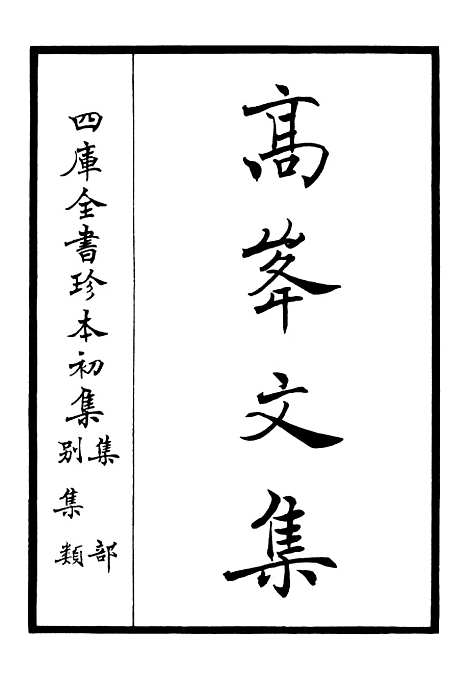 髙峯文集
四庫全書珍本初集
集部
別集類